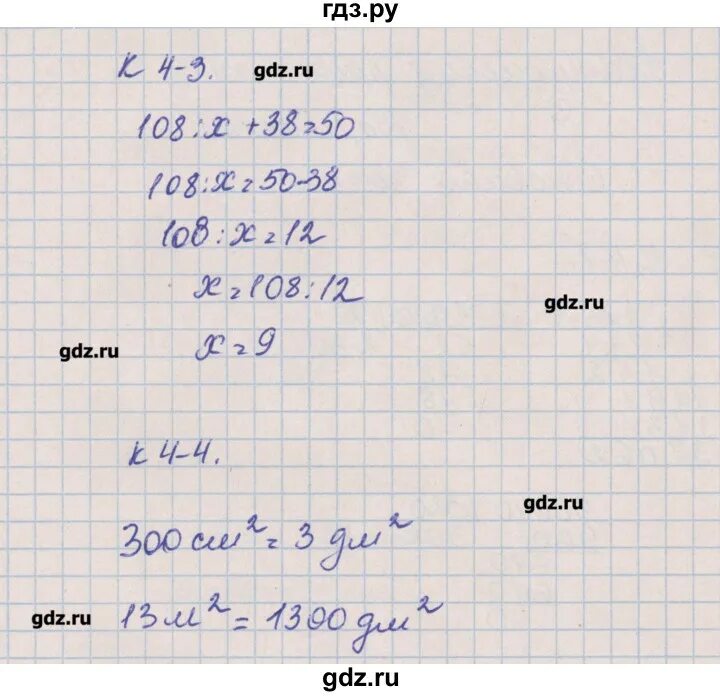 гдз.ру
К 4-3. gdz.ru
108:x+38=50
108:x=50-38
108:x=12
x=108:12
gdz.ru
x=9
gdz.ru
К 4-4.
gdz.ru
300 см²=3 дм²
13 м²=1300 дм²
gdz.ru
gdz.ru